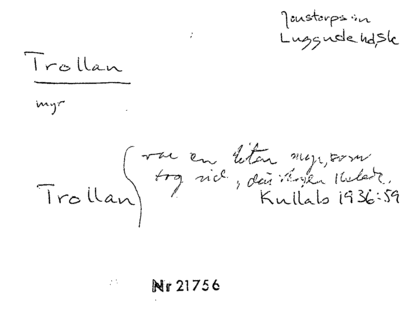 Jonstorps sn
Luggude hd, Sk
Trollan
myr
var en liten myr, som
Trollan
tog vid, där
Kullab 1936:59
Nr 21756